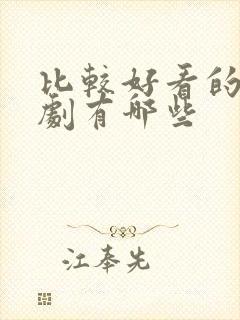 比較好看的
劇有哪些
江奉先